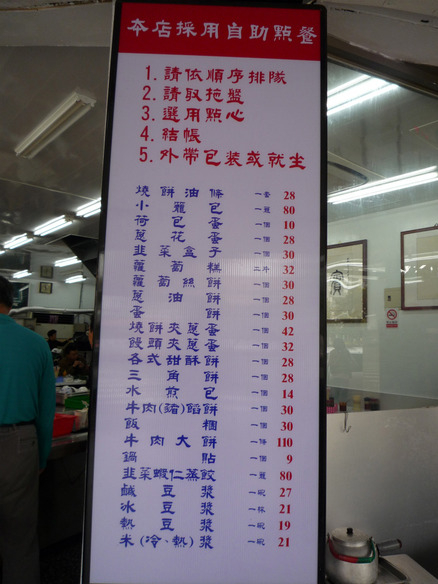 本店採用自助點餐
1. 請依順序排隊
2. 請取拖盤
3. 選用點心
4. 結帳
5. 外帶包裝或就坐
燒餅油條 一套 28
小籠包 一籠 80
荷包蛋 一個 10
蔥花蛋 一個 28
韭菜盒子 一個 30
蘿蔔糕 二片 32
蘿蔔絲餅 一個 30
蔥油餅 一個 28
蛋餅 一個 30
燒餅夾蔥蛋 一個 42
饅頭夾蔥蛋 一個 32
各式甜酥餅 一個 28
三角餅 一個 28
水煎包 一個 14
牛肉(豬)餡餅 一個 30
飯糰 一個 30
牛肉大餅 一條 110
鍋貼 一個 9
韭菜蝦仁蒸餃 一籠 80
鹹豆漿 一碗 27
冰豆漿 一杯 21
熱豆漿 一碗 19
米(冷、熱)漿 一碗 21